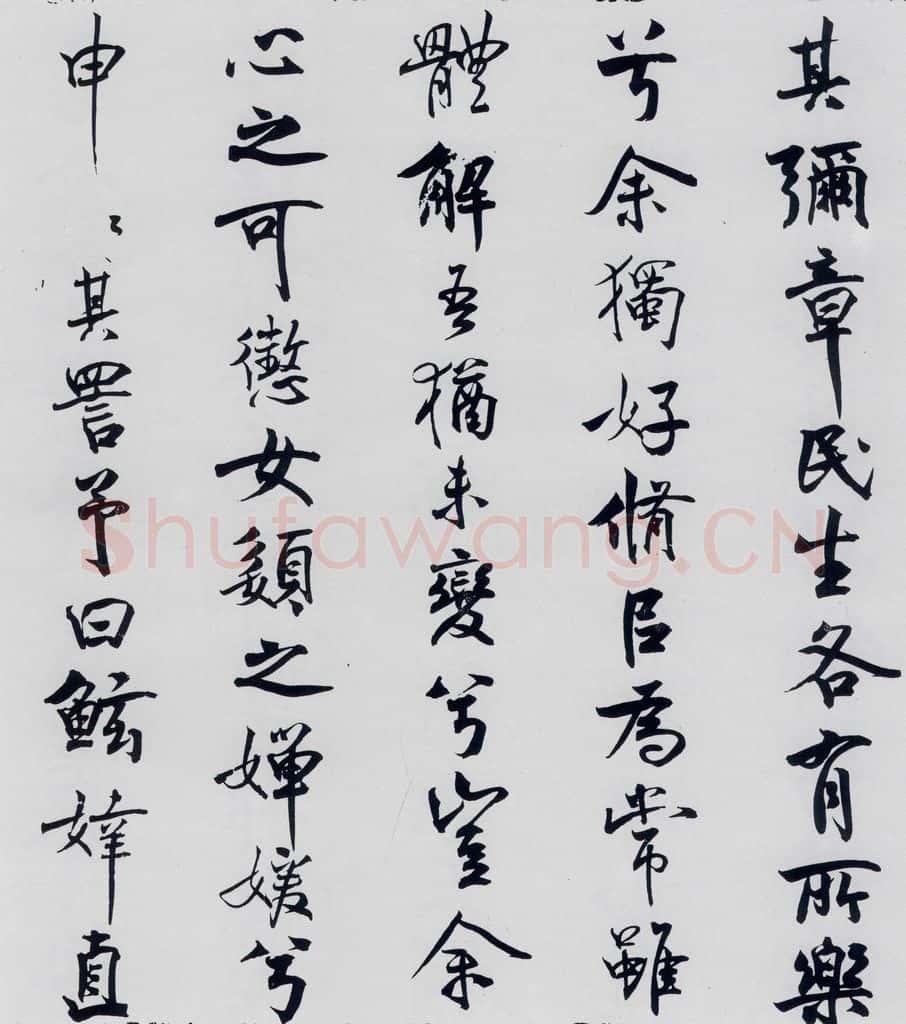 其彌章民生各有所樂
兮余獨好脩㠯為常雖
體解吾猶未變兮豈余
心之可懲女嬃之嬋媛兮
申〻其詈予曰鮌婞直
Shufawang.CN